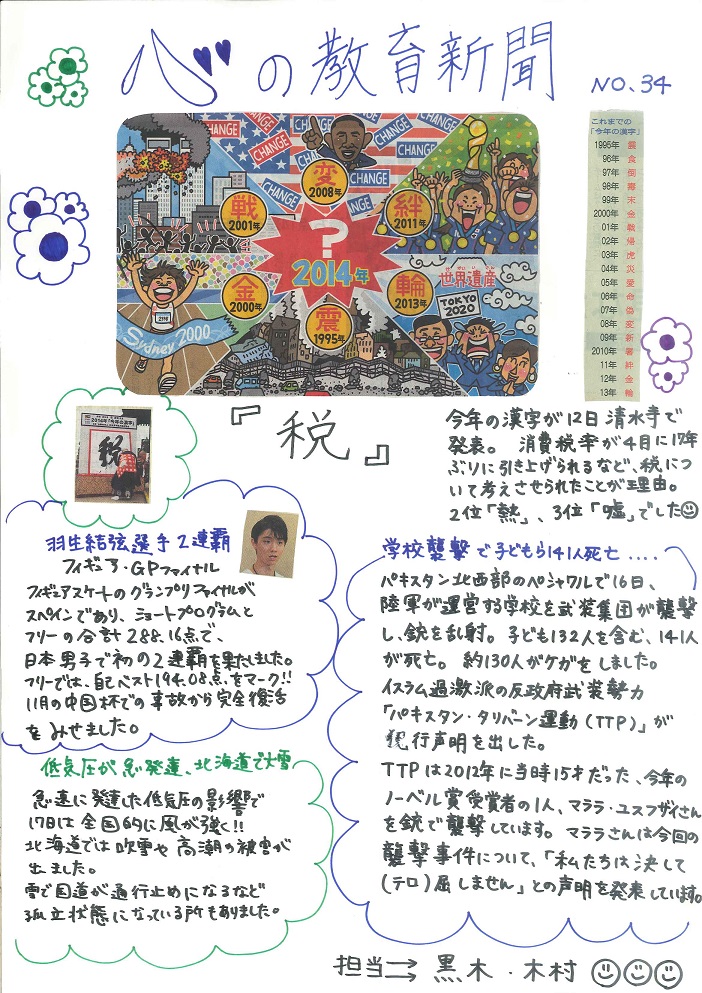 心の教育新聞
NO.34
CHANGE
CHANGE
CHANGE
CHANGE
CHANGE
CHANGE
変
2008年
戦
2001年
絆
2011年
?
2014年
金
2000年
輪
2013年
震
1995年
世界遺産
TOKYO
2020
2116
Sydney 2000
これまでの
「今年の漢字」
1995年 震
96年 食
97年 倒
98年 毒
99年 末
2000年 金
01年 戦
02年 帰
03年 虎
04年 災
05年 愛
06年 命
07年 偽
08年 変
09年 新
2010年 暑
11年 絆
12年 金
13年 輪
『税』
税
今年の漢字が12日清水寺で
発表。 消費税率が4月に17年
ぶりに引き上げられるなど、税につ
いて考えさせられたことが理由。
2位「熱」、3位「嘘」でした
羽生結弦選手2連覇
フィギュア・GPファイナル
フィギュアスケートのグランプリファイナルが
スペインであり、ショートプログラムと
フリーの合計288.16点で、
日本男子で初の2連覇を果たしました。
フリーでは、自己ベスト194.08点をマーク!!
11月の中国杯での事故から完全復活
をみせました。
低気圧が急発達、北海道で大雪
急速に発達した低気圧の影響で
17日は全国的に風が強く!!
北海道では吹雪や高潮の被害が
出ました。
雪で国道が通行止めになるなど
孤立状態になっている所もありました。
学校襲撃で子どもら141人死亡....
パキスタン北西部のペシャワルで16日、
陸軍が運営する学校を武装集団が襲撃
し、銃を乱射。子ども132人を含む、141人
が死亡。 約130人がケガをしました。
イスラム過激派の反政府武装勢力
「パキスタン・タリバーン運動(TTP)」が
犯行声明を出した。
TTPは2012年に当時15才だった、今年の
ノーベル賞受賞者の1人、マララ・ユスフザイさん
を銃で襲撃しています。マララさんは今回の
襲撃事件について、「私たちは決して
(テロ)屈しません」との声明を発表しています。
担当→ 黒木・木村